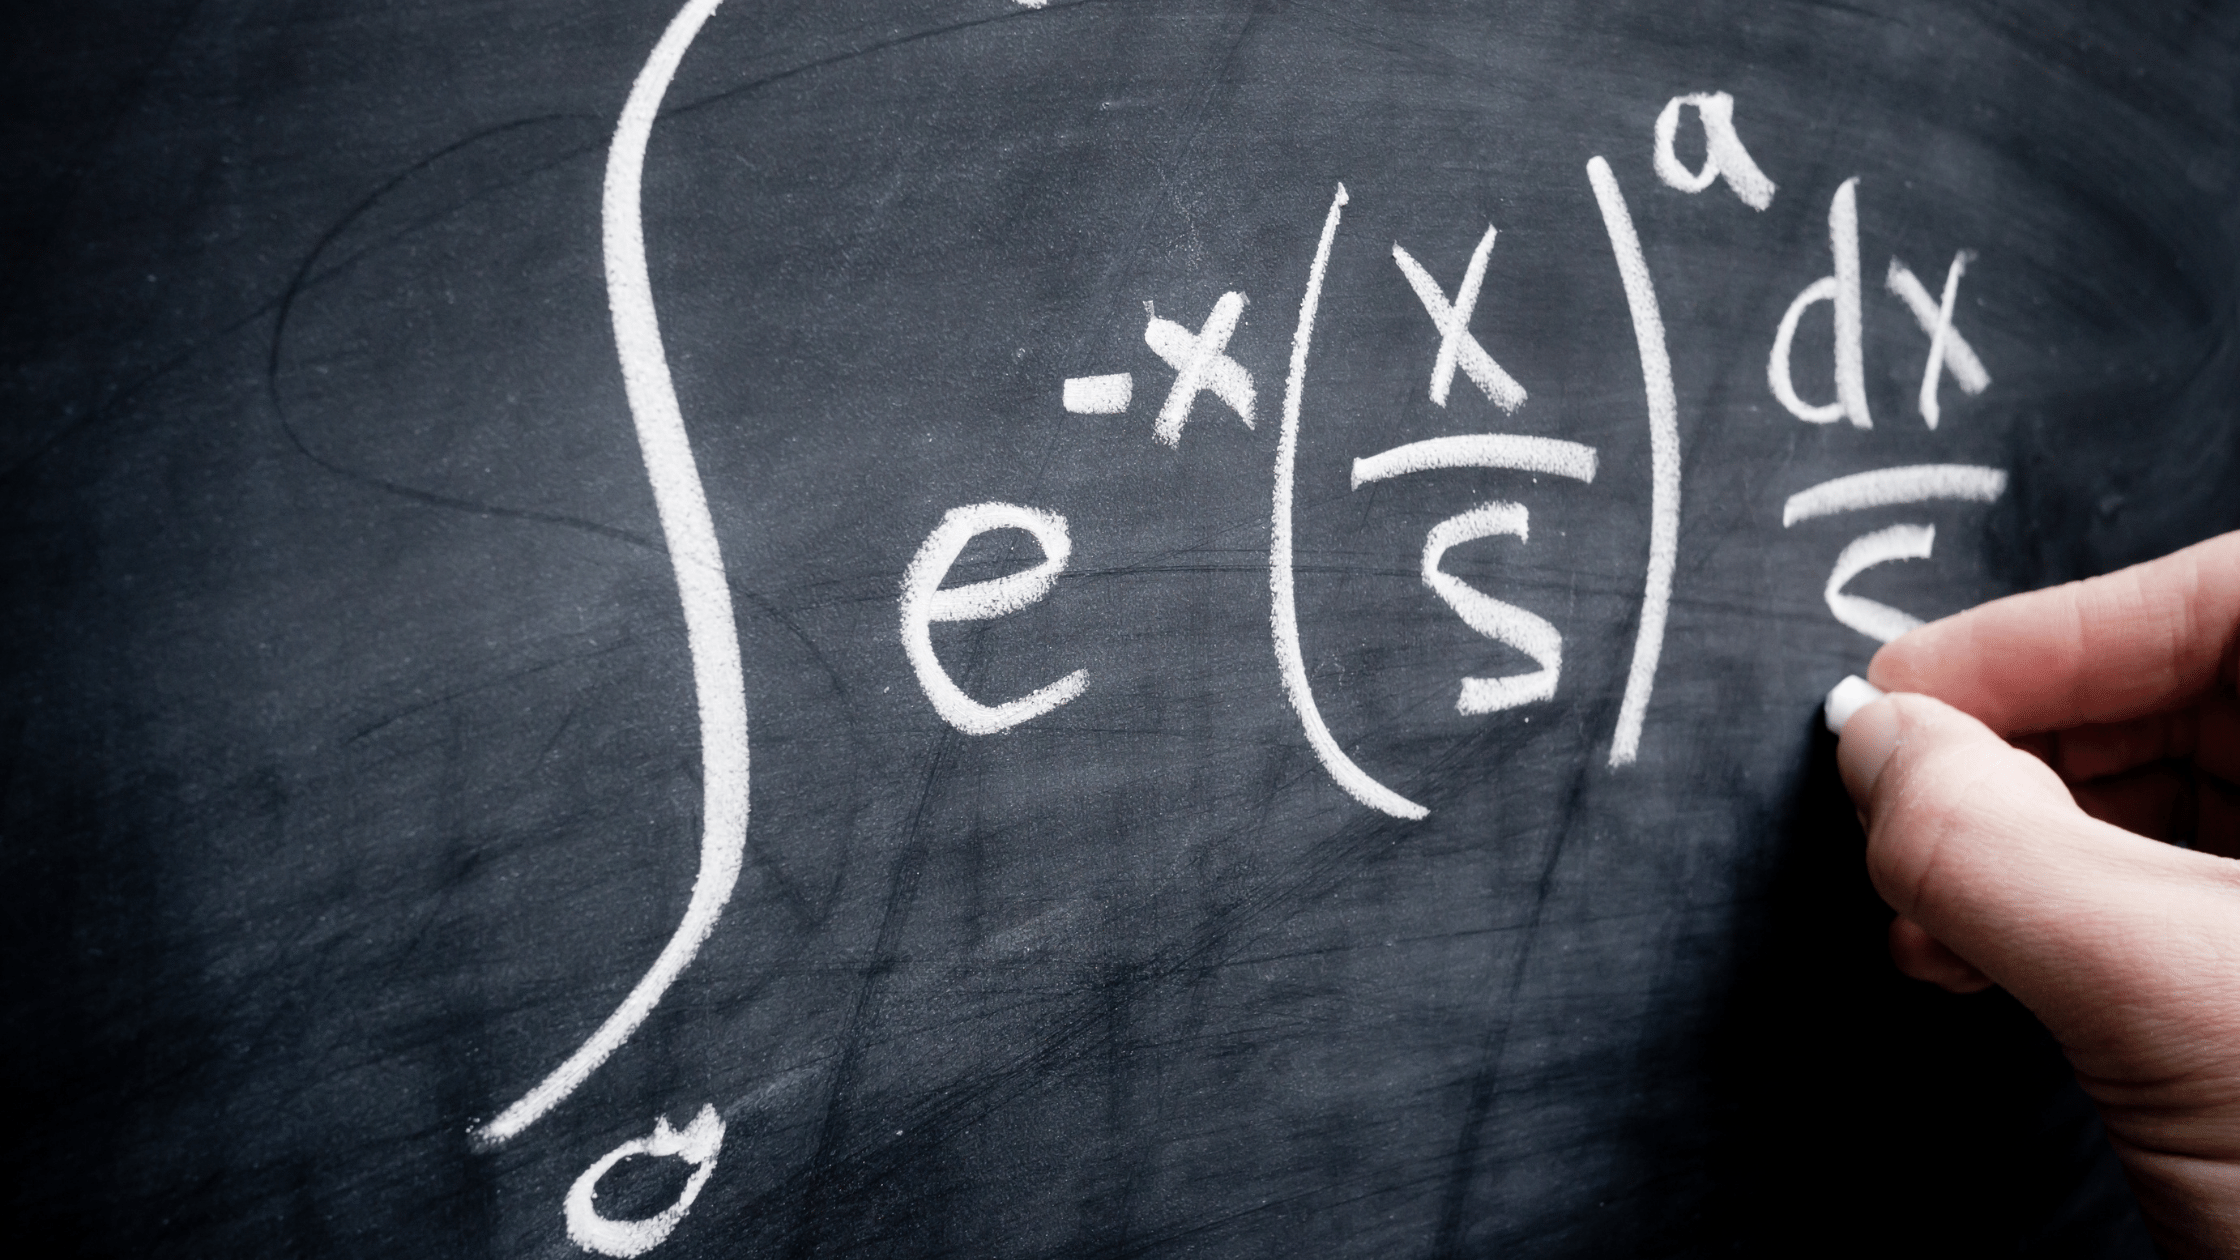 ∫₀ e⁻ˣ (x/s)ᵃ dx/s